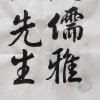 儒雅
先生